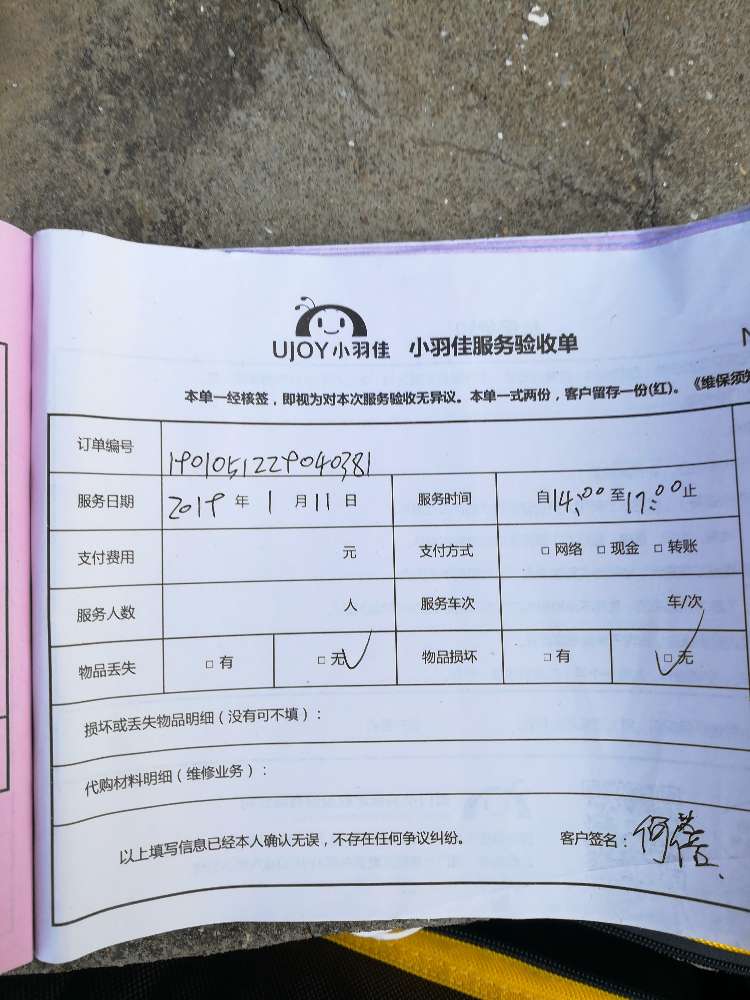 UJOY小羽佳 小羽佳服务验收单
本单一经核签，即视为对本次服务验收无异议。本单一式两份，客户留存一份(红)。《维保须知
订单编号 1901051229040381
服务日期 2019 年 1 月 11 日 服务时间 自14:00至17:00止
支付费用 元 支付方式 □ 网络 □ 现金 □ 转账
服务人数 人 服务车次 车/次
物品丢失 □ 有 □ 无✓ 物品损坏 □ 有 □ 无✓
损坏或丢失物品明细（没有可不填）：
代购材料明细（维修业务）：
以上填写信息已经本人确认无误，不存在任何争议纠纷。 客户签名：何